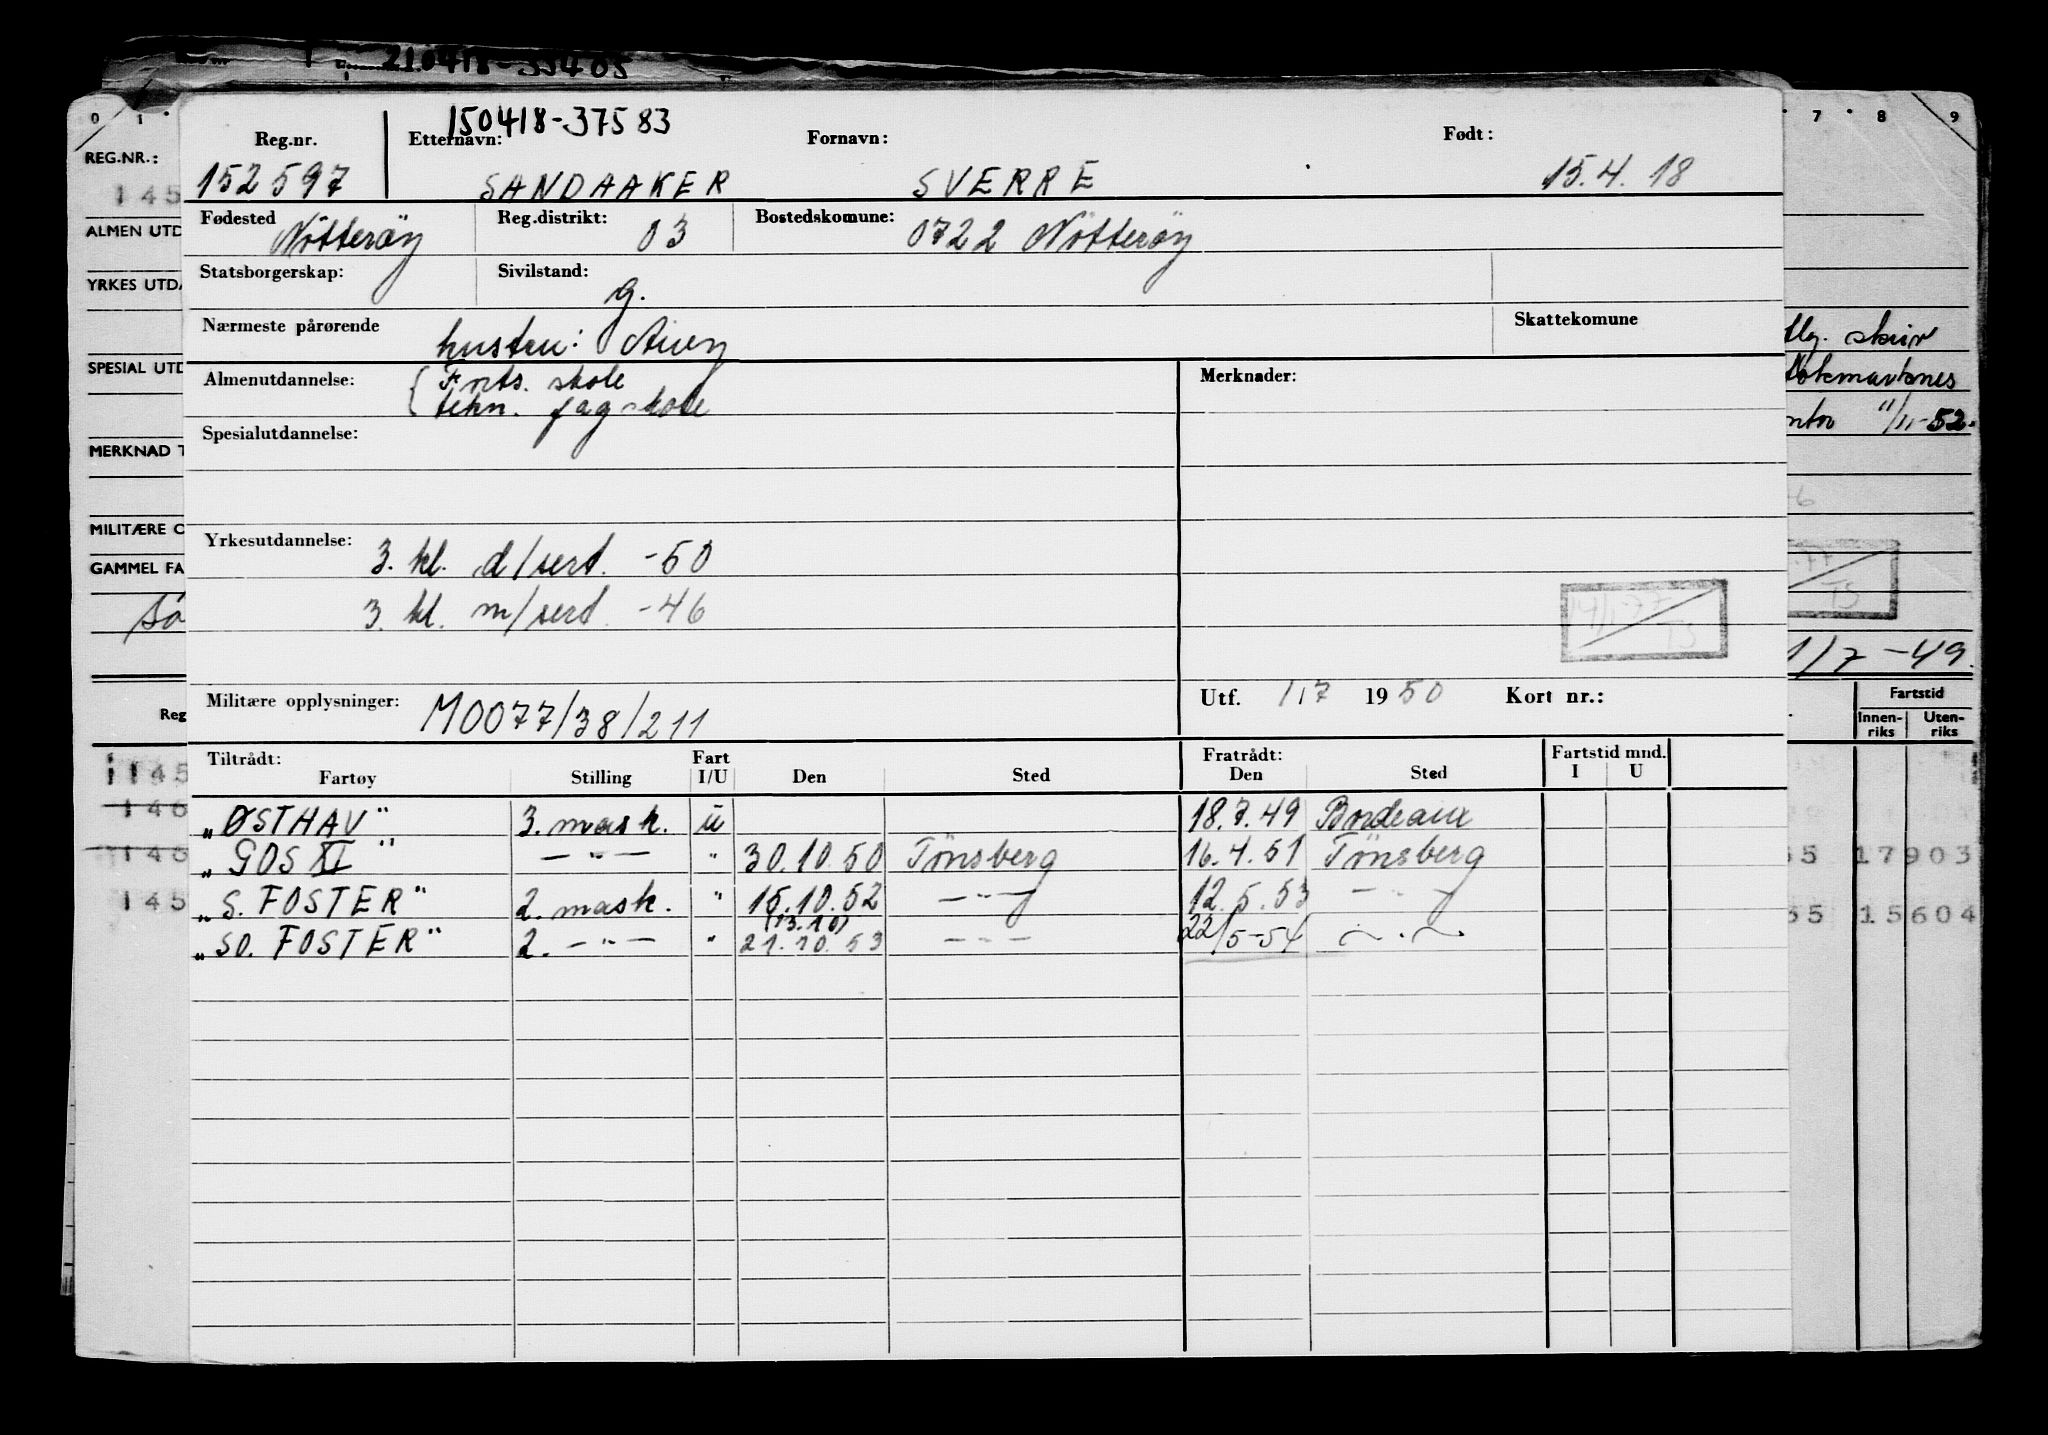 210418-33405
150418-37583
Reg.nr. Etternavn: Fornavn: Født:
152597 SANDAAKER SVERRE 15.4.18
Fødested Nötteröy Reg.distrikt: 03 Bostedskomune: 0722 Nötteröy
Statsborgerskap: Sivilstand: g.
Nærmeste pårørende hustru: Skattekomune
Almenutdannelse: { Forts. skole Merknader:
tekn. fagskole
Spesialutdannelse:
Yrkesutdannelse: 3. kl. d/sert. -50
3. kl. m/sert. -46
14/1-77
TS
Militære opplysninger: M0077/38/211 Utf. 1/7 1950 Kort nr.:
Tiltrådt: Fart Fratrådt: Fartstid mnd.
Fartøy Stilling I/U Den Sted Den Sted I U
„ØSTHAV" 3. mask. u 18.7.49 Bordeaux
„GOS XI" —"— " 30.10.50 Tönsberg 16.4.51 Tönsberg
„S. FOSTER" 2. mask. " 15.10.52 —"— 12.5.53 —"—
(13.10)
„SO. FOSTER" 2. —"— " 21.10.53 —"— 22/5-54 —"—
0 1
REG.NR.:
145
ALMEN UTD
YRKES UTDA
SPESIAL UTD
MERKNAD T
MILITÆRE O
GAMMEL FA
Sö
Reg
1145
146
146
145
7 8 9
skin
Stokmarknes
11/11-52.
.77
TS
1/7-49.
Fartstid
Innen-riks Uten-riks
55 17903
55 15604